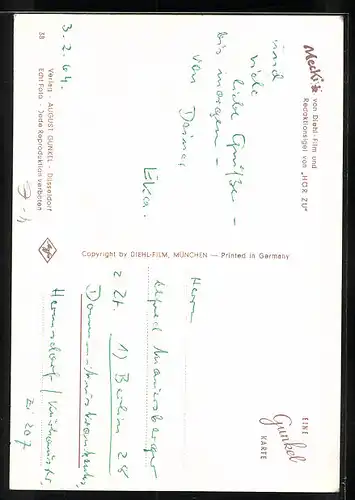 Mecki
von Diehl-Film und
Redaktionsigel von „HÖR ZU"
und
viele
liebe Grüße –
bis morgen –
von Deiner
Erka.
3. 2. 64.
38
Verlag · AUGUST GUNKEL · Düsseldorf
Echt Foto · Jede Reproduktion verboten
Agfa
Copyright by DIEHL-FILM, MÜNCHEN — Printed in Germany
EINE
Gunkel
KARTE
Herrn
Alfred Mauersberger
z. Zt. 1) Berlin 28
Dominikuskrankenhs.
Hermsdorf /
Zi 207